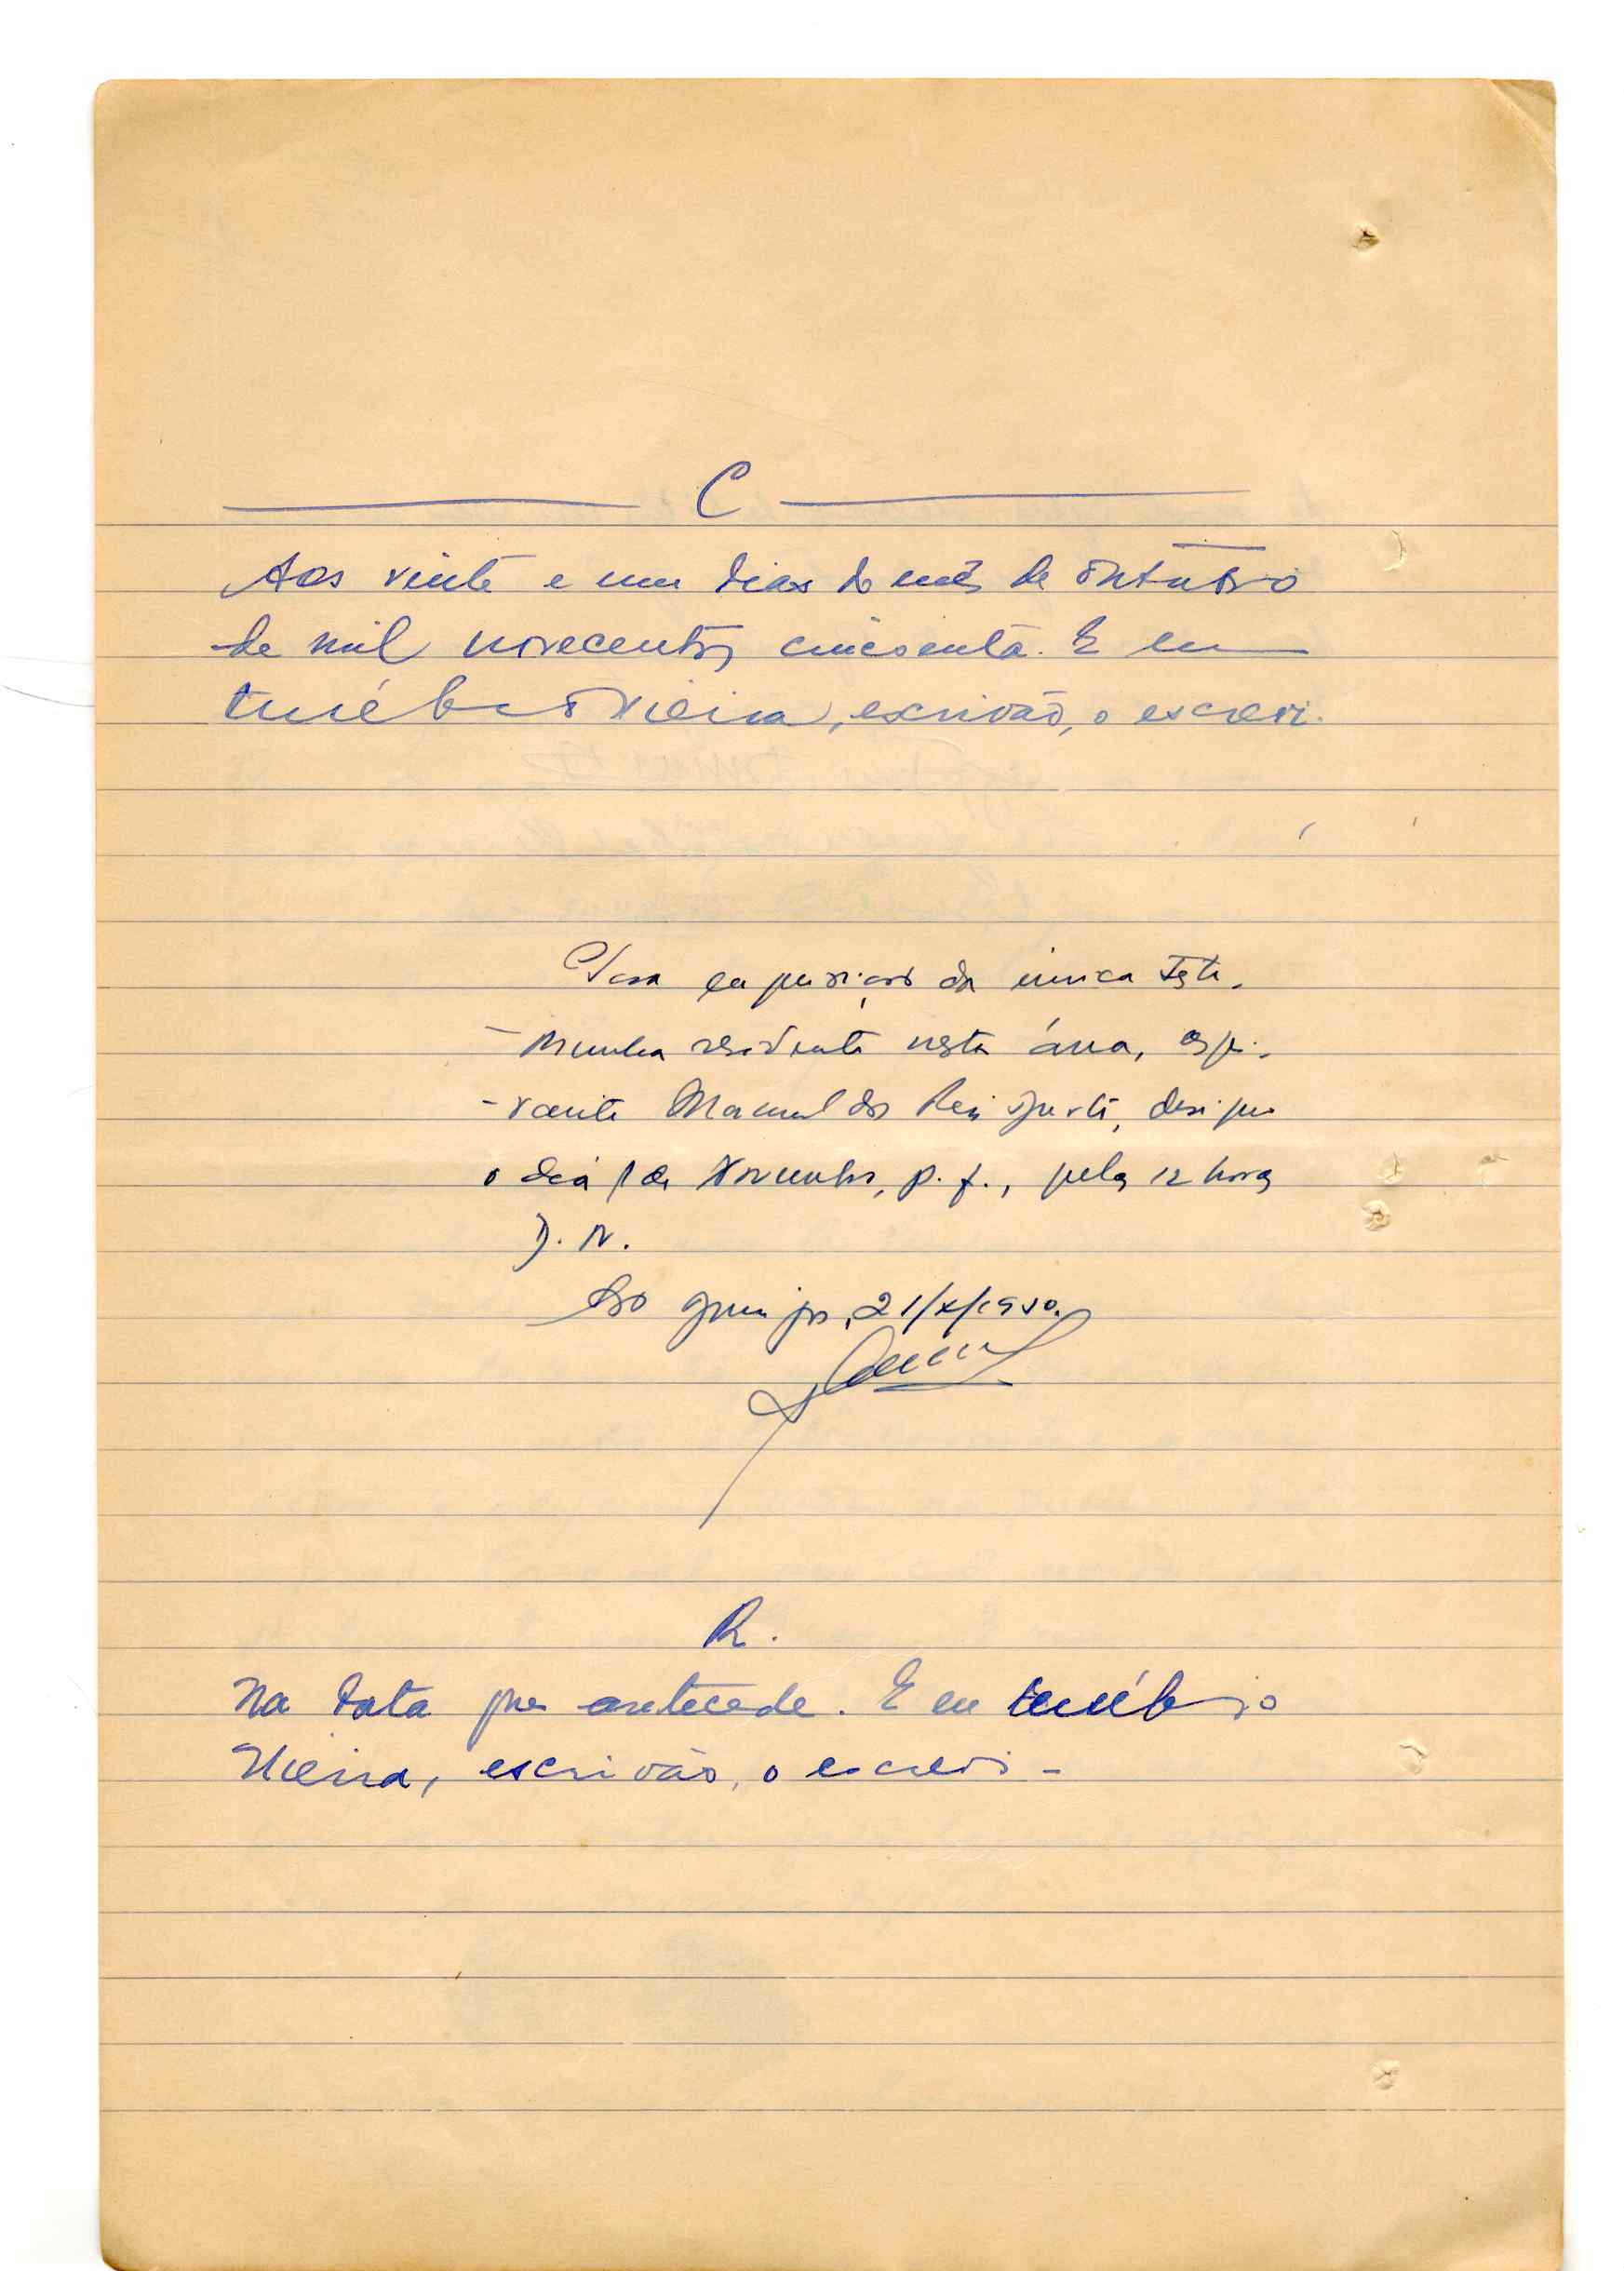 C
Aos vinte e um dias do mês de Outubro
de mil novecentos cincoenta. E eu
Eusébio Vieira, escrivão, o escrevi.
Para inquirição da única teste-
-munha residente nesta área,
Manuel dos Reis Duarte, designo
o dia 1 de Novembro, p. f., pelas 12 horas
D. N.
21/X/1950.
R.
Na data que antecede. E eu Eusébio
Vieira, escrivão, o escrevi -